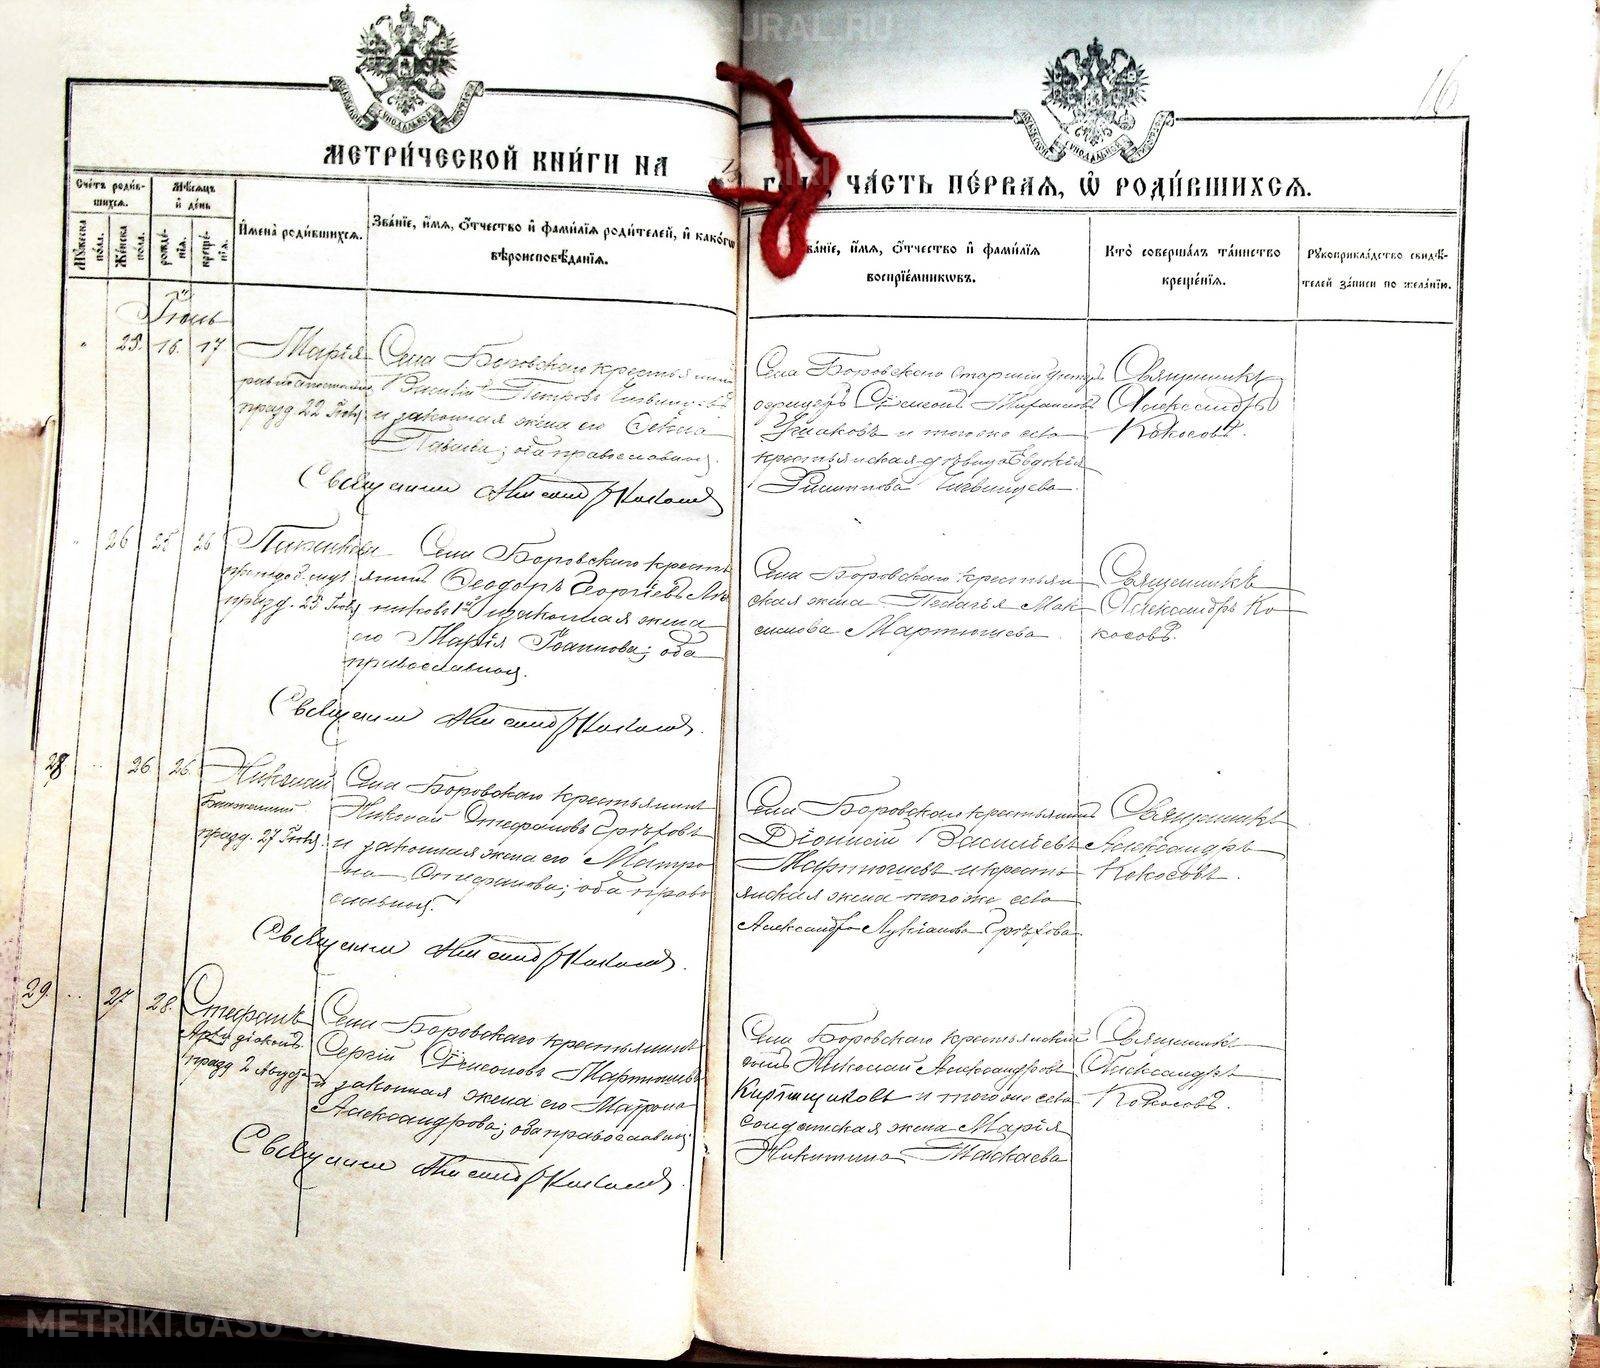 16
МЕТРИ́ЧЕСКОЙ КНИ́ГИ НА
ЧА́СТЬ ПЕ́РВАЯ, Ѡ҆ РОДИ́ВШИХСЯ.
Сче́тъ роди́в-
шихся.
Мѣ́сяцъ
и҆ де́нь
Мꙋ́жеска
по́ла.
Же́нска
по́ла.
рожде́-
нїя.
креще́-
нїя.
И҆мена̀ роди́вшихся.
Зва́нїе, и҆́мя, ѻ҆́тчество и҆ фами́лїя роди́телей, и҆ како́гѡ
вѣроисповѣ́данїя.
и҆́мя, ѻ҆́тчество и҆ фами́лїя
воспрїе́мникѡвъ.
Кто̀ соверша́лъ та́инство
креще́нїя.
Рꙋкоприкла́дство свидѣ́-
телей за́писи по жела́нїю.
Іюнь
25. 16. 17
Марія
празд 22 Іюля
Села Боровскаго крестьянинъ
Василій
и законная жена его
оба православныя.
Священникъ Александръ Кокосовъ
Села Боровскаго старшій унтеръ
офицеръ Сѵмеонъ
Ушаковъ и тогоже села
крестьянская дѣвица Евдокія
Филиппова
Священникъ
Александръ
Кокосовъ.
26 25 26
празд. 25 Іюля
Села Боровскаго кресть
янинъ Ѳеодоръ Георгіевъ
и законная жена
его Марія Іоаннова; оба
православныя.
Священникъ Александръ Кокосовъ.
Села Боровскаго крестьян
ская жена Пелагія Мак
симова Мартюшева
Священникъ
Александръ Ко
косовъ.
28 26 26
Николай
Блаженный
празд. 27 Іюля
Села Боровскаго крестьянинъ
Николай Стефановъ Грѣховъ
и законная жена его Матро
на Стефанова; оба право
славныя.
Священникъ Александръ Кокосовъ.
Села Боровскаго крестьянинъ
Діонисій Васильевъ
Мартюшевъ и кресть
янская жена тогоже села
Александра Лукіанова Грѣхова
Священникъ
Александръ
Кокосовъ.
29. 27 28.
Стефанъ
Архидіаконъ
празд 2 Августа
Села Боровскаго крестьянинъ
Сергій Сѵмеоновъ Мартюшевъ
и законная жена его Матрона
Александрова; оба православныя
Священникъ Александръ Кокосовъ.
Села Боровскаго крестьянскій
сынъ Николай Александровъ
Кирпищиковъ и тогоже села
солдатская жена Марія
Никитина Таскаева
Священникъ
Александръ
Кокосовъ.
METRIKI.GASO-URAL.RU